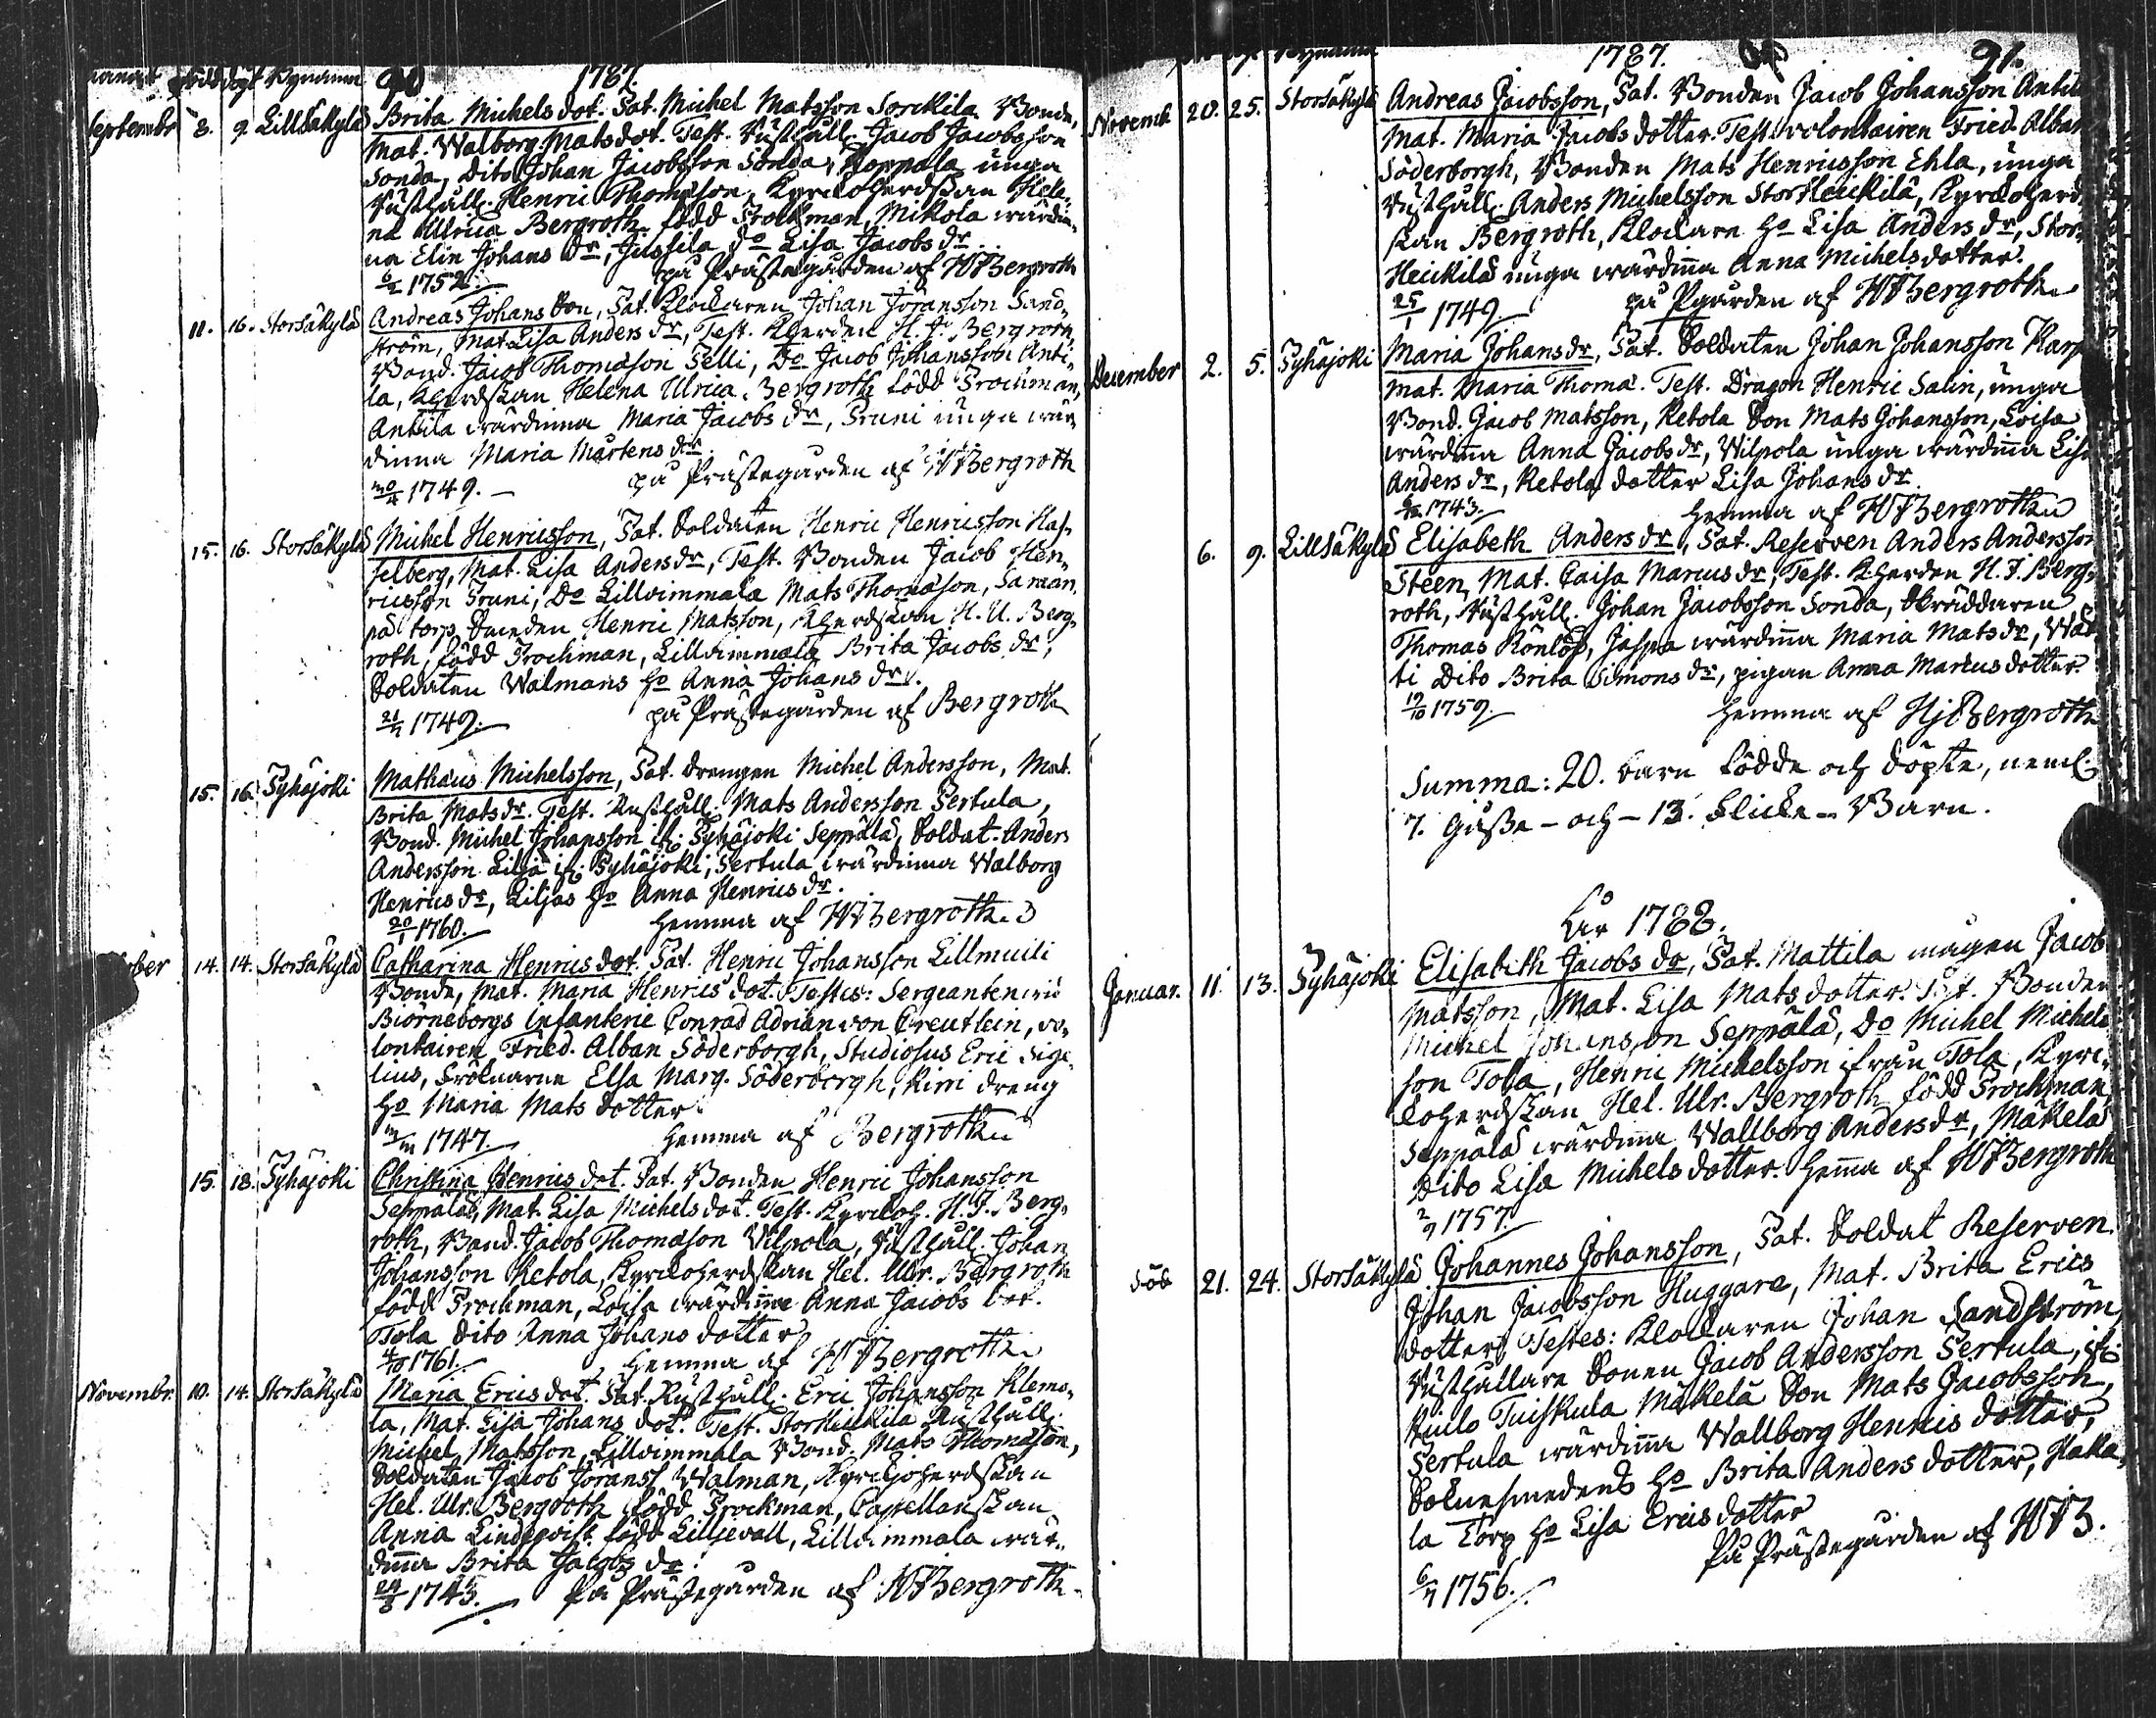 födde dögt Bynamn 90 1787.
Septembr 8. 9. Lillsäkylä Brita Michels dot. Pat. Michel Matsson Sorckila Bonde,
Mat. Walborg Matsdot. Test. Rusthåll. Jacob Jacobsson
Sonda, Dito Johan Jacobsson Sonda, Poppala unga
Rusthåll. Henric Thomasson, Kyrckoherdskan Hele-
na Ulrica Bergroth född Prochman, Mikola wärdin-
na Elin Johans Dr, Jussila Do Lisa Jacobs dr.
1752. på Prästegården af HJBergroth
11. 16. Storsäkylä Andreas Johans Son, Pat. Klockaren Johan Jöransson Sand-
ström, Mat. Lisa Anders dr, Test. KHerden H. J. Bergroth,
Bond. Jacob Thomasson Pelli, Do Jacob Johansson Anti-
la, KHerdskan Helena Ulrica Bergroth född Prochman,
Antila wärdinna Maria Jacobs dr, Pruni unga wär-
dinna Maria Mårtens dr.
1749. på Prästegården af HJBergroth
15. 16. Storsäkylä Michel Henricsson, Pat. Soldaten Henric Henricsson Has-
selberg, Mat. Lisa Andersdr, Test. Bonden Jacob Hen-
ricsson Pruni, Do Lillvimmala Mats Thomasson, Samam-
på torp Smeden Henric Matsson, KHerdskan H. U. Berg-
roth, född Prochman, Lillvimmala Brita Jacobs dr,
Soldaten Walmans Ho Anna Johans dr.
1749. på Prästegården af Bergroth
15. 16. Pyhäjoki Mathæus Michelsson, Pat. drengen Michel Andersson, Mat.
Brita Matsdr. Test. Rusthåll. Mats Andersson Pertula,
Bond. Michel Johansson ifr. Pyhäjoki Seppälä, Soldat. Anders
Andersson Lilja ifr. Pyhäjoki, Pertula wärdinna Walborg
Henrics dr, Liljas Ho Anna Henrics dr.
20/1 1760. hemma af HJBergroth
14. 14. Storsäkylä Catharina Henrics dot. Pat. Henric Johansson Lillmuiti
Bonde, Mat. Maria Henrics dot. Testes: Sergeanten wid
Biörneborgs Infanterie Conrad Adrian von Creutlein, vo-
lontairen Fried. Alban Söderborgh, Studiosus Eric Sige-
lius, Fröknarne Elsa Marg. Söderborgh, Kirri dreng
Ho Maria Mats dotter
1747. hemma af Bergroth
15. 18. Pyhäjoki Christina Henrics dot. Pat. Bonden Henric Johansson
Seppälä, Mat. Lisa Michels dot. Test. Kyrckoh. H. J. Berg-
roth, Bond. Jacob Thomasson Vilpola, Rusthåll. Johan
Johansson Ketola, Kyrckoherdskan Hel. Ulr. Bergroth
född Prochman, Loisa wärdinna Anna Jacobs dot.
Tola dito Anna Johans dotter
1761. hemma af HJBergroth
Novembr. 10. 14. Storsäkylä Maria Erics dot. Pat. Rusthåll. Eric Johansson Klemo-
la, Mat. Lisa Johans dot. Test. Storheickilä Rusthåll.
Michel Matsson, Lillvimmala Bond. Mats Thomasson,
Soldaten Jacob Jöranss. Walman, Kyrckoherdskan
Hel. Ulr. Bergroth född Prockman, Capellanskan
Anna Lindqvist född Liljevall, Lillvimmala wär-
dinna Brita Jacobs dr.
1745. På Prästegården af HJBergroth
1787. 91.
Novemb 20. 25. Storsäkylä Andreas Jacobsson, Pat. Bonden Jacob Johansson Antila
Mat. Maria Jacobs dotter. Test. volontairen Fried. Alban
Söderborgh, Bonden Mats Henricsson Ehla, unga
Rusthåll. Anders Michelsson Storheickilä, Kyrckoherd-
skan Bergroth, Klockarn Ho Lisa Anders dr, Stor-
Heickilä unga wärdinna Anna Michelsdotter.
25/1 1749 på Pgården af HJBergroth
December 2. 5. Pyhäjoki Maria Johansdr, Pat. Soldaten Johan Johansson Karp
Mat. Maria Thomæ. Test. Dragon Henric Salin, unga
Bond. Jacob Matsson, Ketola Son Mats Johansson, Loisa
wärdinna Anna Jacobs dr, Wilpola unga wärdinna Lisa
Anders dr, Ketola dotter Lisa Johans dr.
1743. hemma af HJBergroth
6. 9. Lillsäkylä Elisabeth Anders dr, Pat. Reserven Anders Andersson
Steen, Mat. Caisa Marcus dr, Test. K:herden H. J. Berg-
roth, Rusthåll. Johan Jacobsson Sonda, Skräddaren
Thomas Rönlöf, Jaspa wärdinna Maria Matsdr, Wäh-
ti Dito Brita Simons dr, pigan Anna Marcus dotter.
1759. hemma af HJBergroth
Summa: 20. barn födde och döpte, neml.
7. Gosse - och - 13. Flicke - Barn.
År 1788.
Januar. 11. 13. Pyhäjoki Elisabeth Jacobs dr, Pat. Mattila mågen Jacob
Matsson, Mat. Lisa Mats dotter. Test. Bonden
Michel Johansson Seppälä, Do Michel Michels-
son Tola, Henric Michelsson ifrån Tola, Kyrc-
koherdskan Hel. Ulr. Bergroth född Prochman,
Seppälä wärdinna Wallborg Andersdr, Mäkelä
Dito Lisa Michels dotter. hemma af HJBergroth
1757.
21. 24. Storsäkylä Johannes Johansson, Pat. Soldat Reserven
Johan Jacobsson Huggare, Mat. Brita Erics
dotter, Testes: Klockaren Johan Sandström,
Rusthållare Sonen Jacob Andersson Pertula, ifr.
Kiulo Tuiskula Mäkelä Son Mats Jacobsson,
Pertula wärdinna Wallborg Henrics dotter,
Sochnesmedens Ho Brita Anders dotter, Haka-
la Torp Ho Lisa Erics dotter
På Prästegården af HJB.
1756.